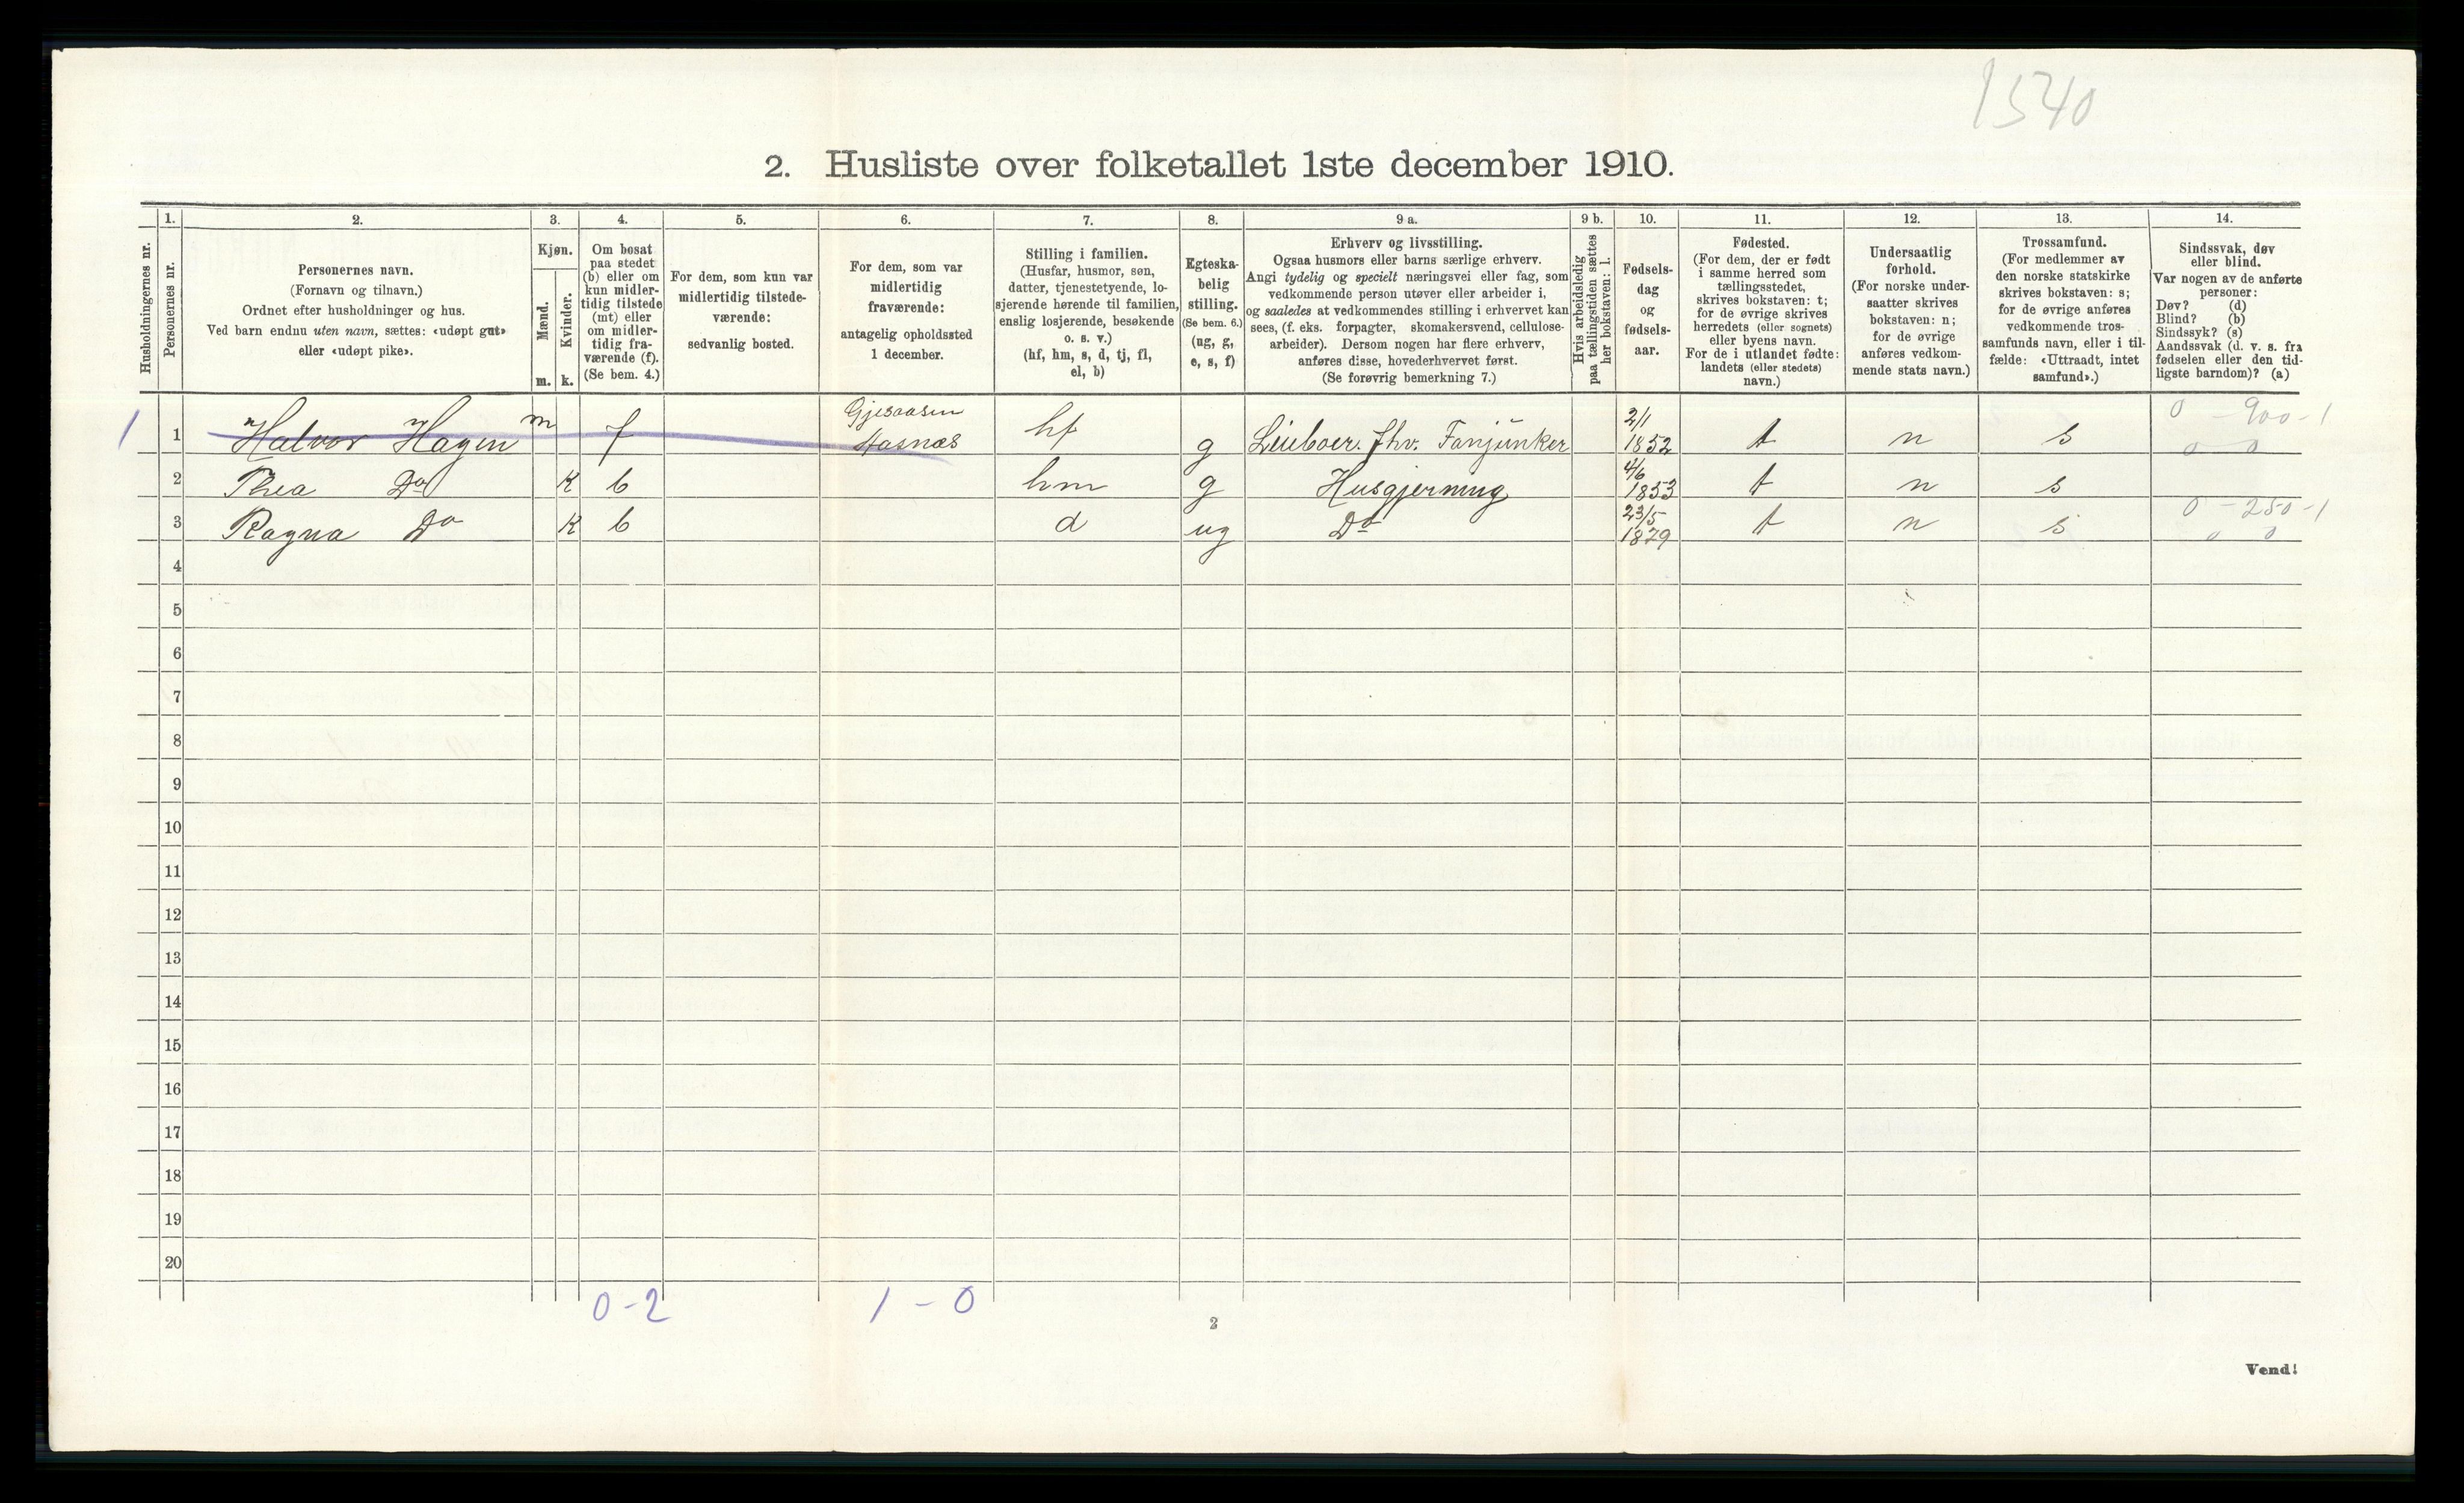 1540
2. Husliste over folketallet 1ste december 1910.
Husholdningernes nr.
1.
Personernes nr.
2.
Personernes navn.
(Fornavn og tilnavn.)
Ordnet efter husholdninger og hus.
Ved barn endnu uten navn, sættes: «udøpt gut»
eller «udøpt pike».
3.
Kjøn.
Mænd.
Kvinder.
m. k.
4.
Om bosat
paa stedet
(b) eller om
kun midler-
tidig tilstede
(mt) eller
om midler-
tidig fra-
værende (f).
(Se bem. 4.)
5.
For dem, som kun var
midlertidig tilstede-
værende:
sedvanlig bosted.
6.
For dem, som var
midlertidig
fraværende:
antagelig opholdssted
1 december.
7.
Stilling i familien.
(Husfar, husmor, søn,
datter, tjenestetyende, lo-
sjerende hørende til familien,
enslig losjerende, besøkende
o. s. v.)
(hf, hm, s, d, tj, fl,
el, b)
8.
Egteska-
belig
stilling.
(Se bem. 6.)
(ug, g,
e, s, f)
9 a.
Erhverv og livsstilling.
Ogsaa husmors eller barns særlige erhverv.
Angi tydelig og specielt næringsvei eller fag, som
vedkommende person utøver eller arbeider i,
og saaledes at vedkommendes stilling i erhvervet kan
sees, (f. eks. forpagter, skomakersvend, cellulose-
arbeider). Dersom nogen har flere erhverv,
anføres disse, hovederhvervet først.
(Se forøvrig bemerkning 7.)
9 b.
Hvis arbeidsledig
paa tællingstiden sættes
her bokstaven: l.
10.
Fødsels-
dag
og
fødsels-
aar.
11.
Fødested.
(For dem, der er født
i samme herred som
tællingsstedet,
skrives bokstaven: t;
for de øvrige skrives
herredets (eller sognets)
eller byens navn.
For de i utlandet fødte:
landets (eller stedets)
navn.)
12.
Undersaatlig
forhold.
(For norske under-
saatter skrives
bokstaven: n;
for de øvrige
anføres vedkom-
mende stats navn.)
13.
Trossamfund.
(For medlemmer av
den norske statskirke
skrives bokstaven: s;
for de øvrige anføres
vedkommende tros-
samfunds navn, eller i til-
fælde: «Uttraadt, intet
samfund».)
14.
Sindssvak, døv
eller blind.
Var nogen av de anførte
personer:
Døv? (d)
Blind? (b)
Sindssyk? (s)
Aandssvak (d. v. s. fra
fødselen eller den tid-
ligste barndom)? (a)
Gjesaasen 2/1 0 - 900 - 1
1 1 Halvor Hagen m f Aasnæs hf g fhv. Fanjunker 1852 t n s 0 0
4/6
2 Thea Do K b hm g Husgjerning 1853 t n s
23/5 0 - 250 - 1
3 Ragna Do K b d ug Do 1879 t n s 0 0
4
5
6
7
8
9
10
11
12
13
14
15
16
17
18
19
20
0 - 2 1 - 0
2
Vend!